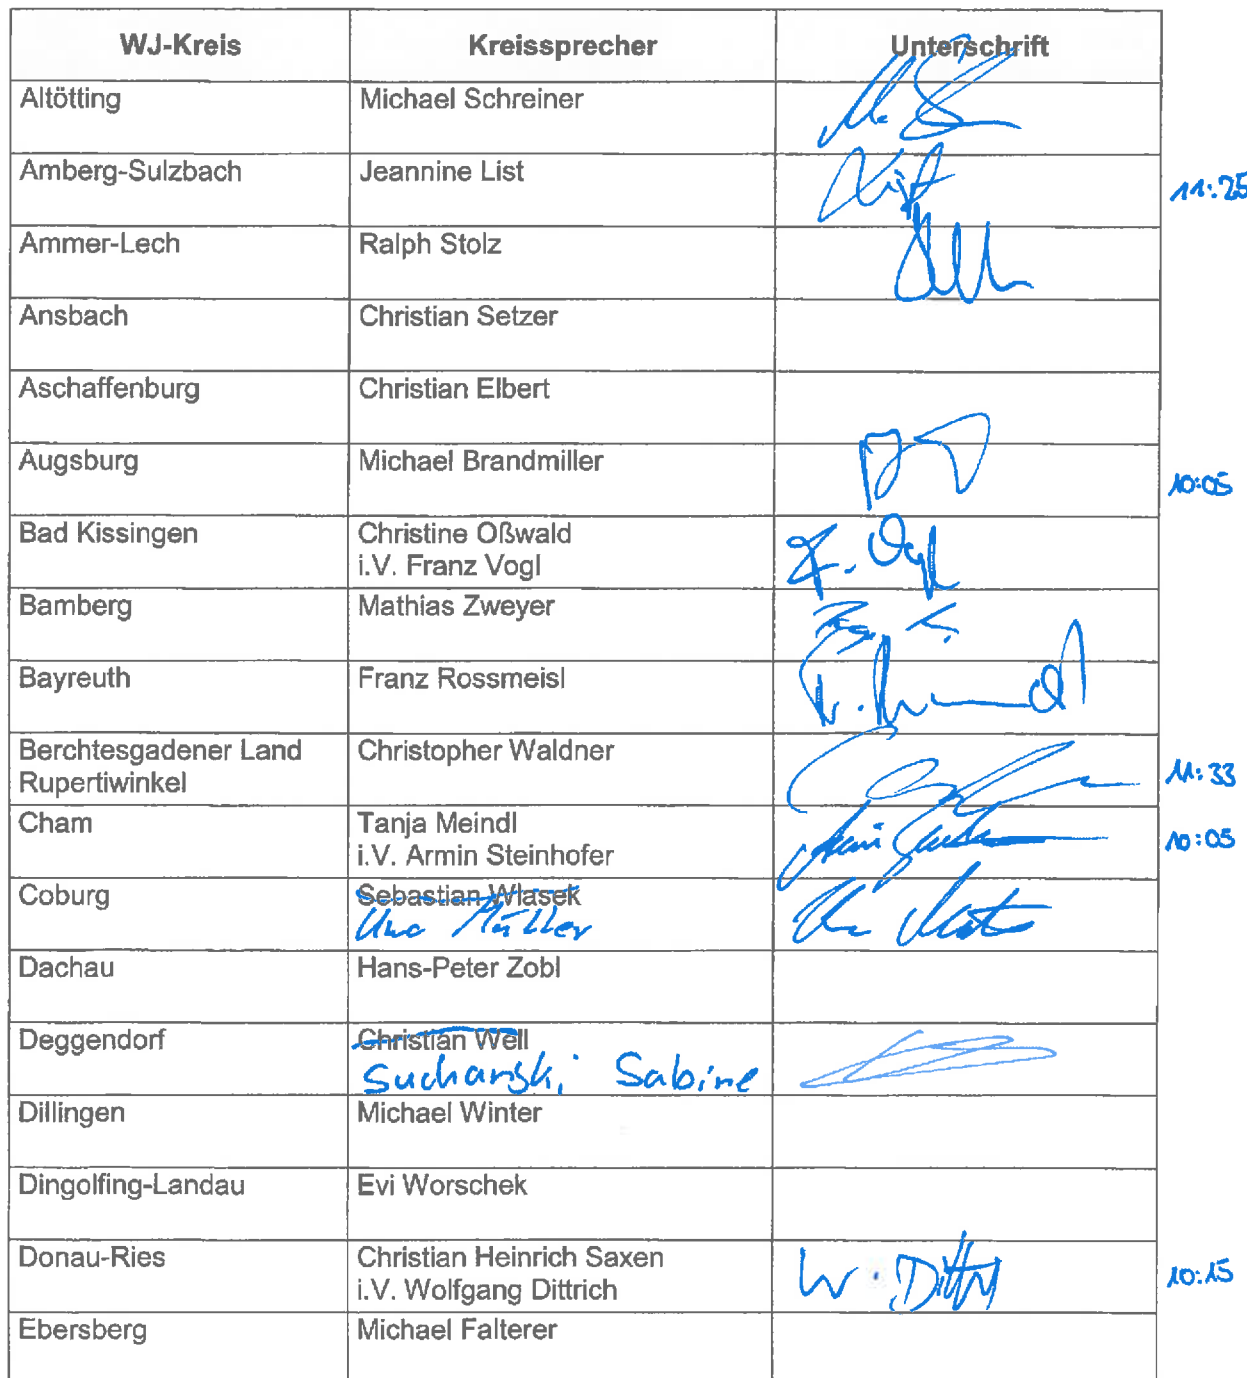 WJ-Kreis Kreissprecher Unterschrift
Altötting Michael Schreiner
Amberg-Sulzbach Jeannine List 11:25
Ammer-Lech Ralph Stolz
Ansbach Christian Setzer
Aschaffenburg Christian Elbert
Augsburg Michael Brandmiller 10:05
Bad Kissingen Christine Oßwald
i.V. Franz Vogl F. Vogl
Bamberg Mathias Zweyer
Bayreuth Franz Rossmeisl
Berchtesgadener Land Christopher Waldner 11:33
Rupertiwinkel
Cham Tanja Meindl 10:05
i.V. Armin Steinhofer
Coburg Sebastian Wlasek
Uwe Müller
Dachau Hans-Peter Zobl
Deggendorf Christian Well
Sucharski Sabine
Dillingen Michael Winter
Dingolfing-Landau Evi Worschek
Donau-Ries Christian Heinrich Saxen 10:15
i.V. Wolfgang Dittrich
Ebersberg Michael Falterer